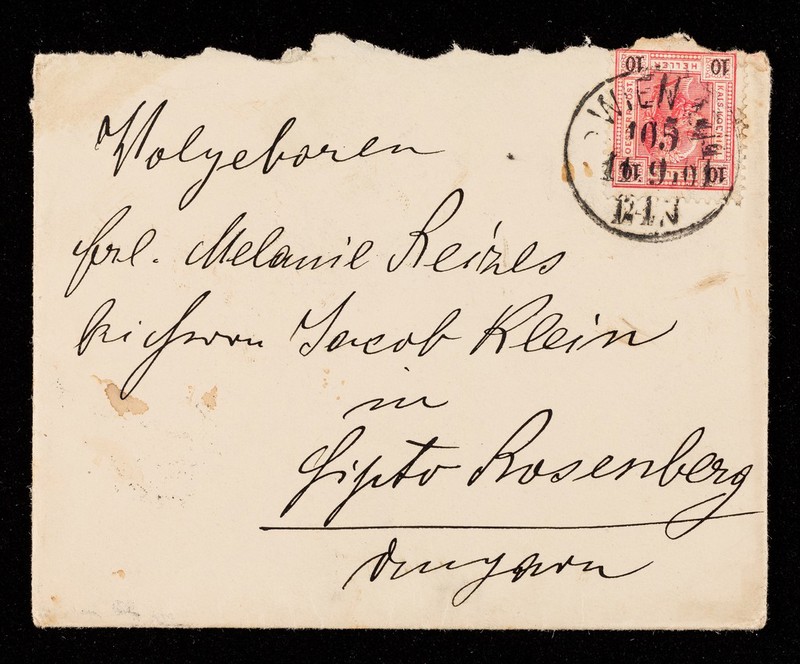 Wolgeboren
frl. Melanie Reizes
bei Herrn Jacob Klein
in
Lipto Rosenberg
Ungarn
WIEN
105
9.01
10 HELLER 10
10 10